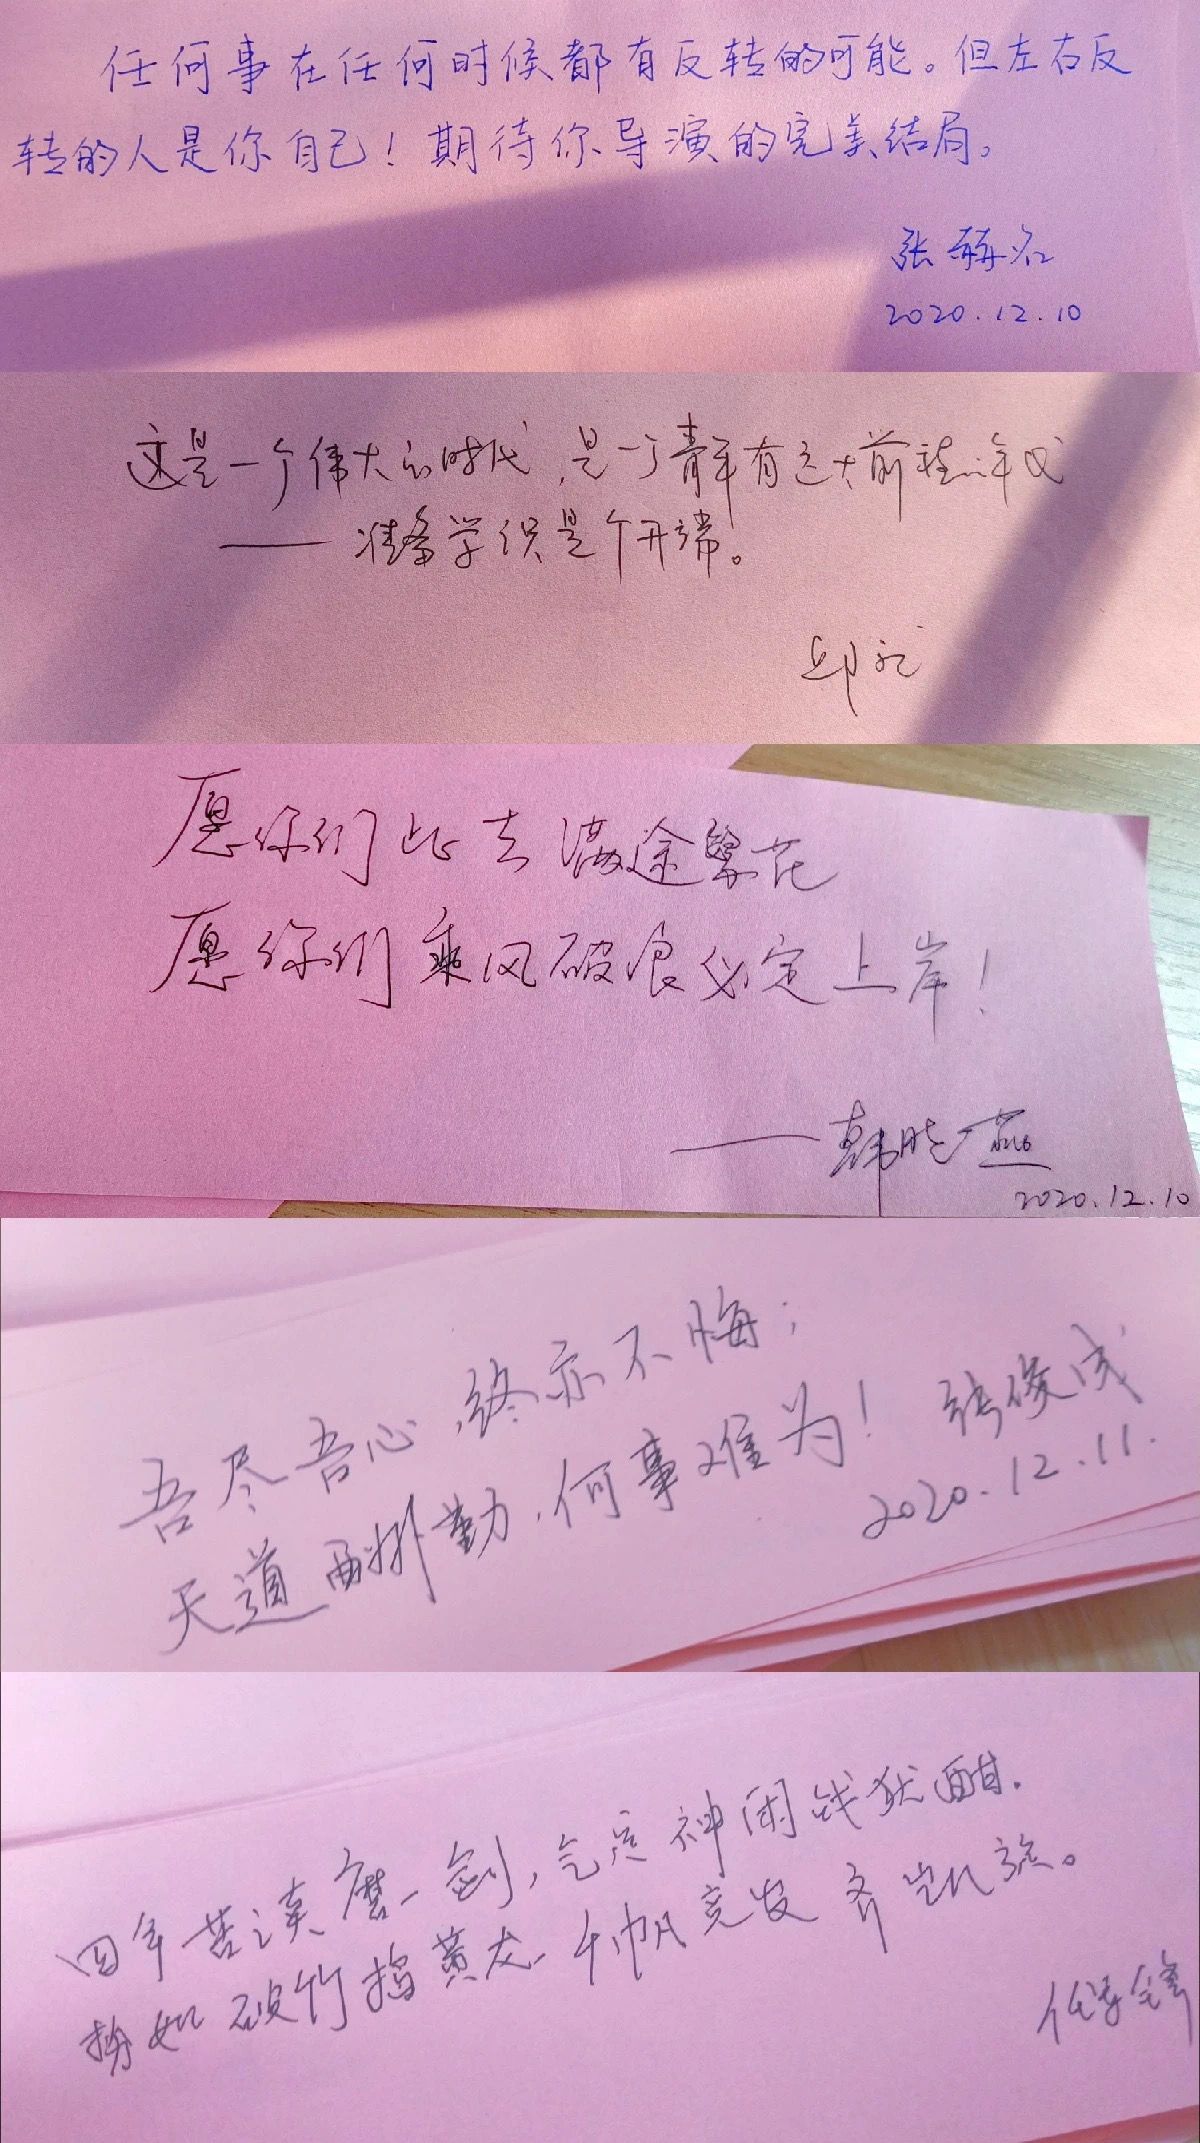 任何事在任何时候都有反转的可能。但左右反
转的人是你自己！期待你导演的完美结局。
张
2020.12.10
这是一个伟大的时代,是一个青年有远大前程的年代
——准备学识是个开端。
邱
愿你们此去满途繁花
愿你们乘风破浪必定上岸！
——韩晓燕
2020.12.10
吾尽吾心,终亦不悔;
天道酬勤,何事难为！张俊成
2020.12.11.
四年苦读磨一剑,气定神闲战犹酣.
势如破竹捣黄龙.千帆竞发齐凯旋。
任 锋